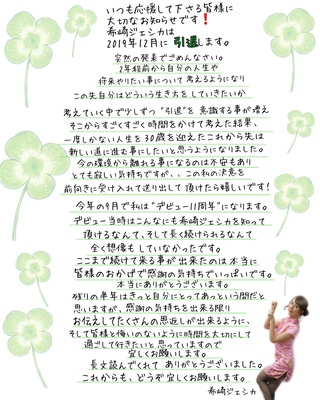 いつも応援して下さる皆様に
大切なお知らせです❗
希崎ジェシカは
2019年12月に 引退します。
突然の発表でごめんなさい。
2年程前から自分の人生や
将来やりたい事について考えるようになり
この先自分はどういう生き方をしていきたいか
考えていく中で少しずつ“引退”を意識する事が増え
そこからすごくすごく時間をかけて考えた結果、
一度しかない人生を30歳を迎えたこれから先は
新しい道に進む事にしたいと思うようになりました。
今の環境から離れる事になるのは不安もあり
とても寂しい気持ちですが、、この私の決意を
前向きに受け入れて送り出して頂けたら嬉しいです！
今年の9月で私は“デビュー11周年”になります。
デビュー当時はこんなにも希崎ジェシカを知って
頂けるなんて、そして長く続けられるなんて
全く想像もしていなかったです。
ここまで続けて来る事が出来たのは本当に
皆様のおかげで感謝の気持ちでいっぱいです。
本当にありがとうございます。
残りの半年はきっと自分にとってあっという間だと
思いますが、感謝の気持ちを出来る限り
お伝えしてたくさんの恩返しが出来るように、
そして皆様と悔いのないように時間を大切にして
過ごして行きたいと思っていますので
宜しくお願いします。
長文読んでくれて ありがとうございました。
これからも、どうぞ宜しくお願いします。
希崎ジェシカ